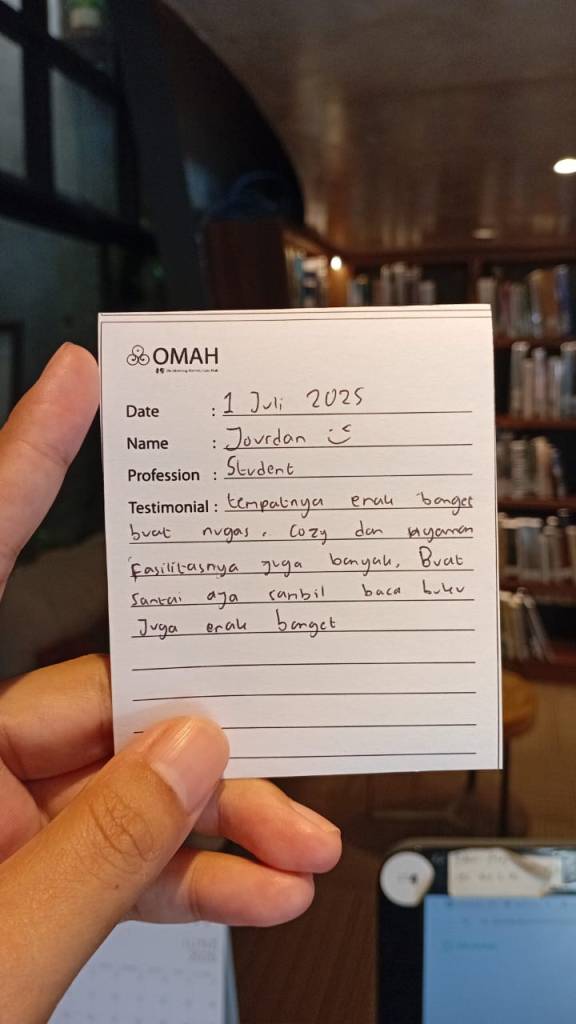 OMAH
Date : 1 Juli 2025
Name : Jourdan :)
Profession : Student
Testimonial : tempatnya enak banget
buat nugas. Cozy dan nyaman
Fasilitasnya juga banyak. Buat
santai aja sambil baca buku
Juga enak banget